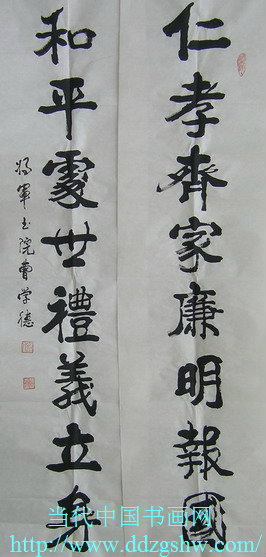 仁孝齊家廉明報國
和平處世禮義立身
将軍书院曹学德
当代中国书画网
http://www.ddzgshw.com/